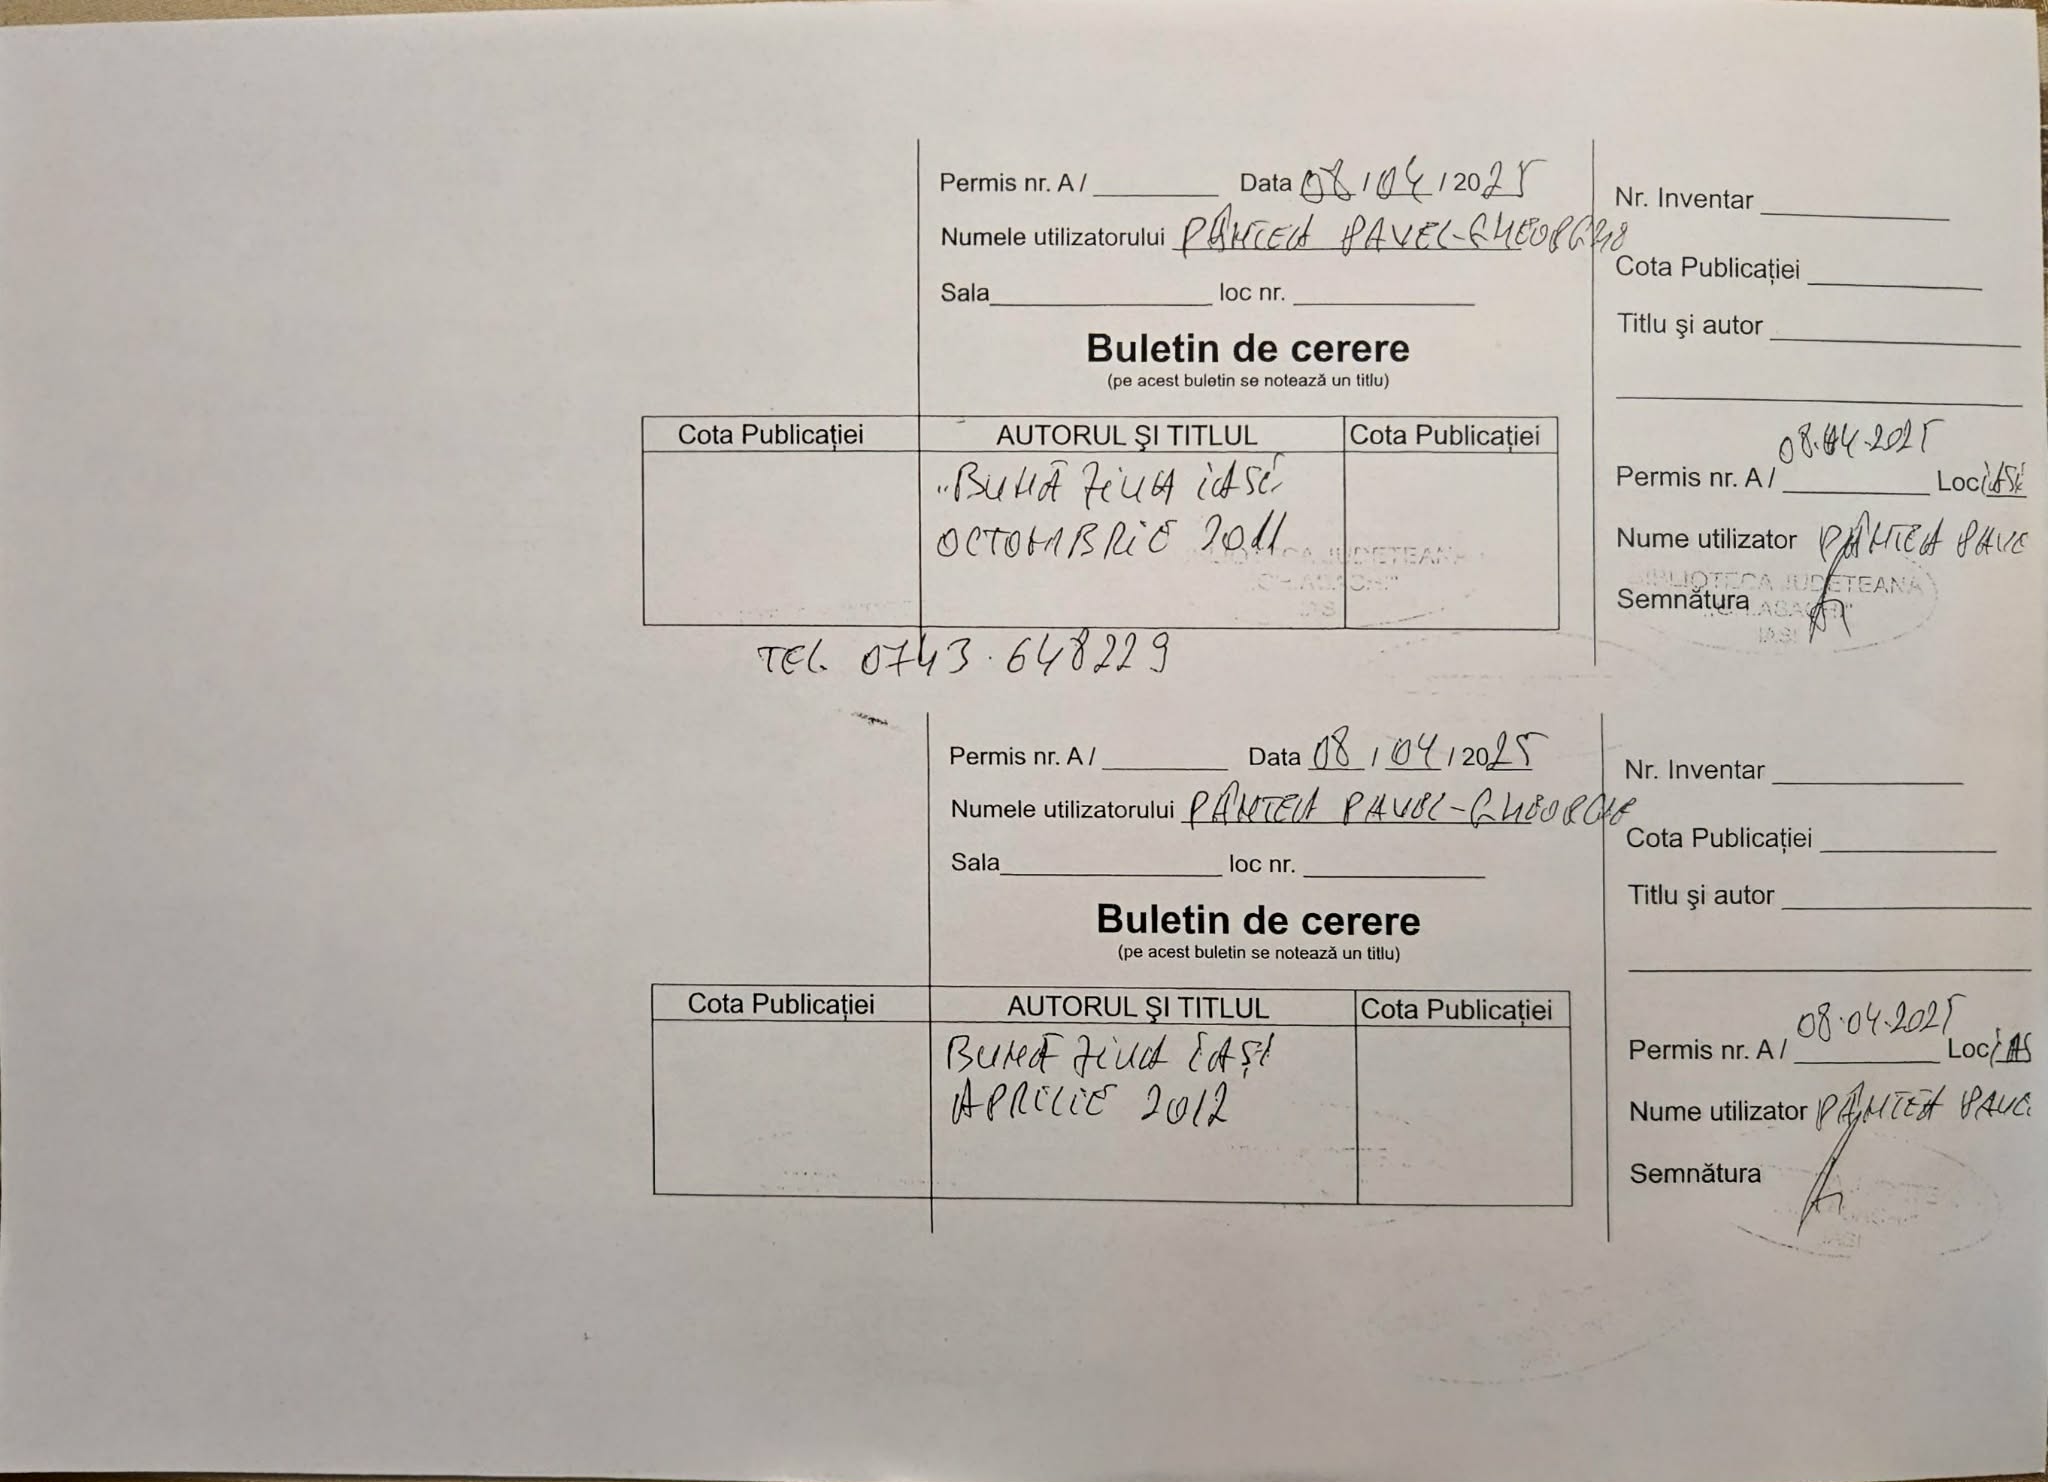 Permis nr. A / Data 08 / 04 / 2025
Numele utilizatorului PÂNTEA PAVEL-GHEORGHE
Sala loc nr.
Buletin de cerere
(pe acest buletin se notează un titlu)
Cota Publicației AUTORUL ŞI TITLUL Cota Publicației
„BUNĂ ZIUA IASI
OCTOMBRIE 2011
TEL. 0743.648229
Nr. Inventar
Cota Publicației
Titlu şi autor
08.04.2025
Permis nr. A / Loc IASI
Nume utilizator PÂNTEA PAVE
Semnătura
BIBLIOTECA JUDEȚEANĂ
"GH. ASACHI"
IASI
Permis nr. A / Data 08 / 04 / 2025
Numele utilizatorului PÂNTEA PAVEL-GHEORGHE
Sala loc nr.
Buletin de cerere
(pe acest buletin se notează un titlu)
Cota Publicației AUTORUL ŞI TITLUL Cota Publicației
BUNĂ ZIUA IAŞI
APRILIE 2012
Nr. Inventar
Cota Publicației
Titlu şi autor
08.04.2025
Permis nr. A / Loc IAS
Nume utilizator PÂNTEA PAVE
Semnătura
IASI